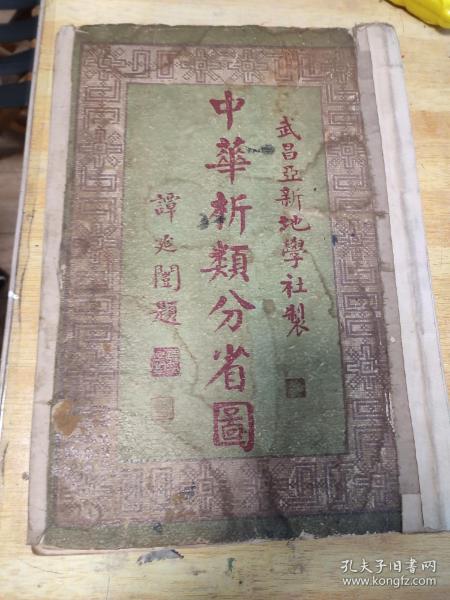 武昌亞新地學社製
中華析類分省圖
譚延闓題
孔夫子旧书网
www.kongfz.com